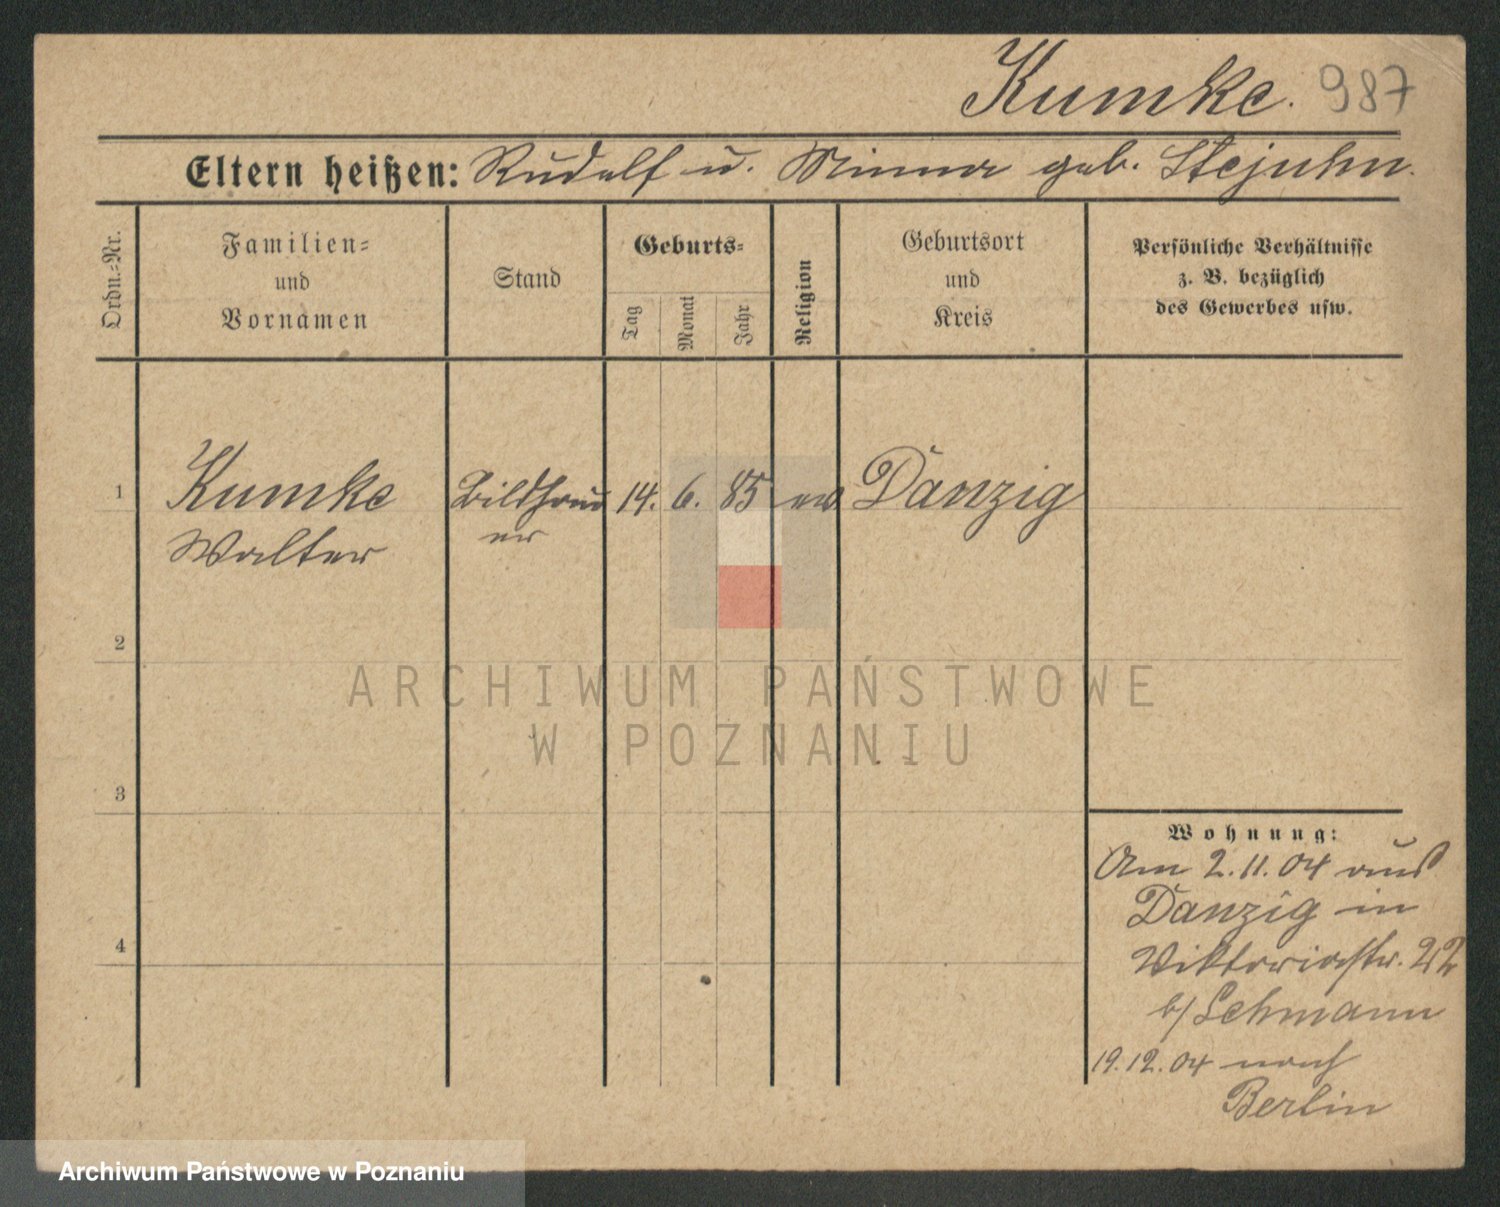 Kumke. 987
Eltern heißen: Rudolf u. Minna geb. Stejuhn.
Ordn.-Nr.
Familien-
und
Vornamen
Stand
Geburts-
Tag
Monat
Jahr
Religion
Geburtsort
und
Kreis
Persönliche Verhältnisse
z. B. bezüglich
des Gewerbes usw.
1 Kumke Bildhau 14. 6. 85 ev. Danzig
Walter er
2
3
4
Wohnung:
Am 2.11.04 aus
Danzig in
Viktoriastr. 22
b/ Lehmann
19.12.04 nach
Berlin
ARCHIWUM PAŃSTWOWE
W POZNANIU
Archiwum Państwowe w Poznaniu